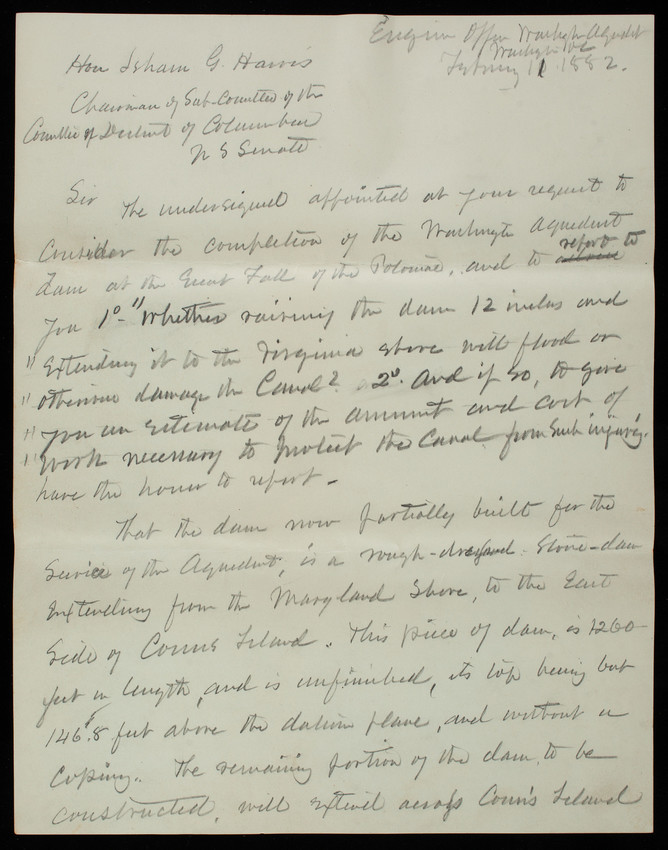 Engineer Office Washington Aqueduct
Washington DC
February 11 1882.
Hon Isham G. Harris
Chairman of Sub-Comttee of the
Comttee of District of Columbia
U S Senate
Sir
The undersigned appointed at your request to
Consider the completion of the Washington Aqueduct
Dam at the Great Fall of the Potomac, and to advise report to
you 1o "Whether raising the dam 12 inches and
" Extending it to the Virginia shore will flood or
" otherwise damage the Canal? 2o. And if so, to give
" you an estimate of the amount and cost of
" work necessary to protect the Canal from such injury.
have the honor to report -
That the dam now partially built for the
Service of the Aqueduct, is a rough-dressed stone-dam
Extending from the Maryland Shore, to the East
Side of Conns Island. This piece of dam, is 1260
feet in length, and is unfinished, its top being but
146.8 feet above the datum plane, and without a
Coping. The remaining portion of the dam, to be
constructed, will extend across Conn's Island